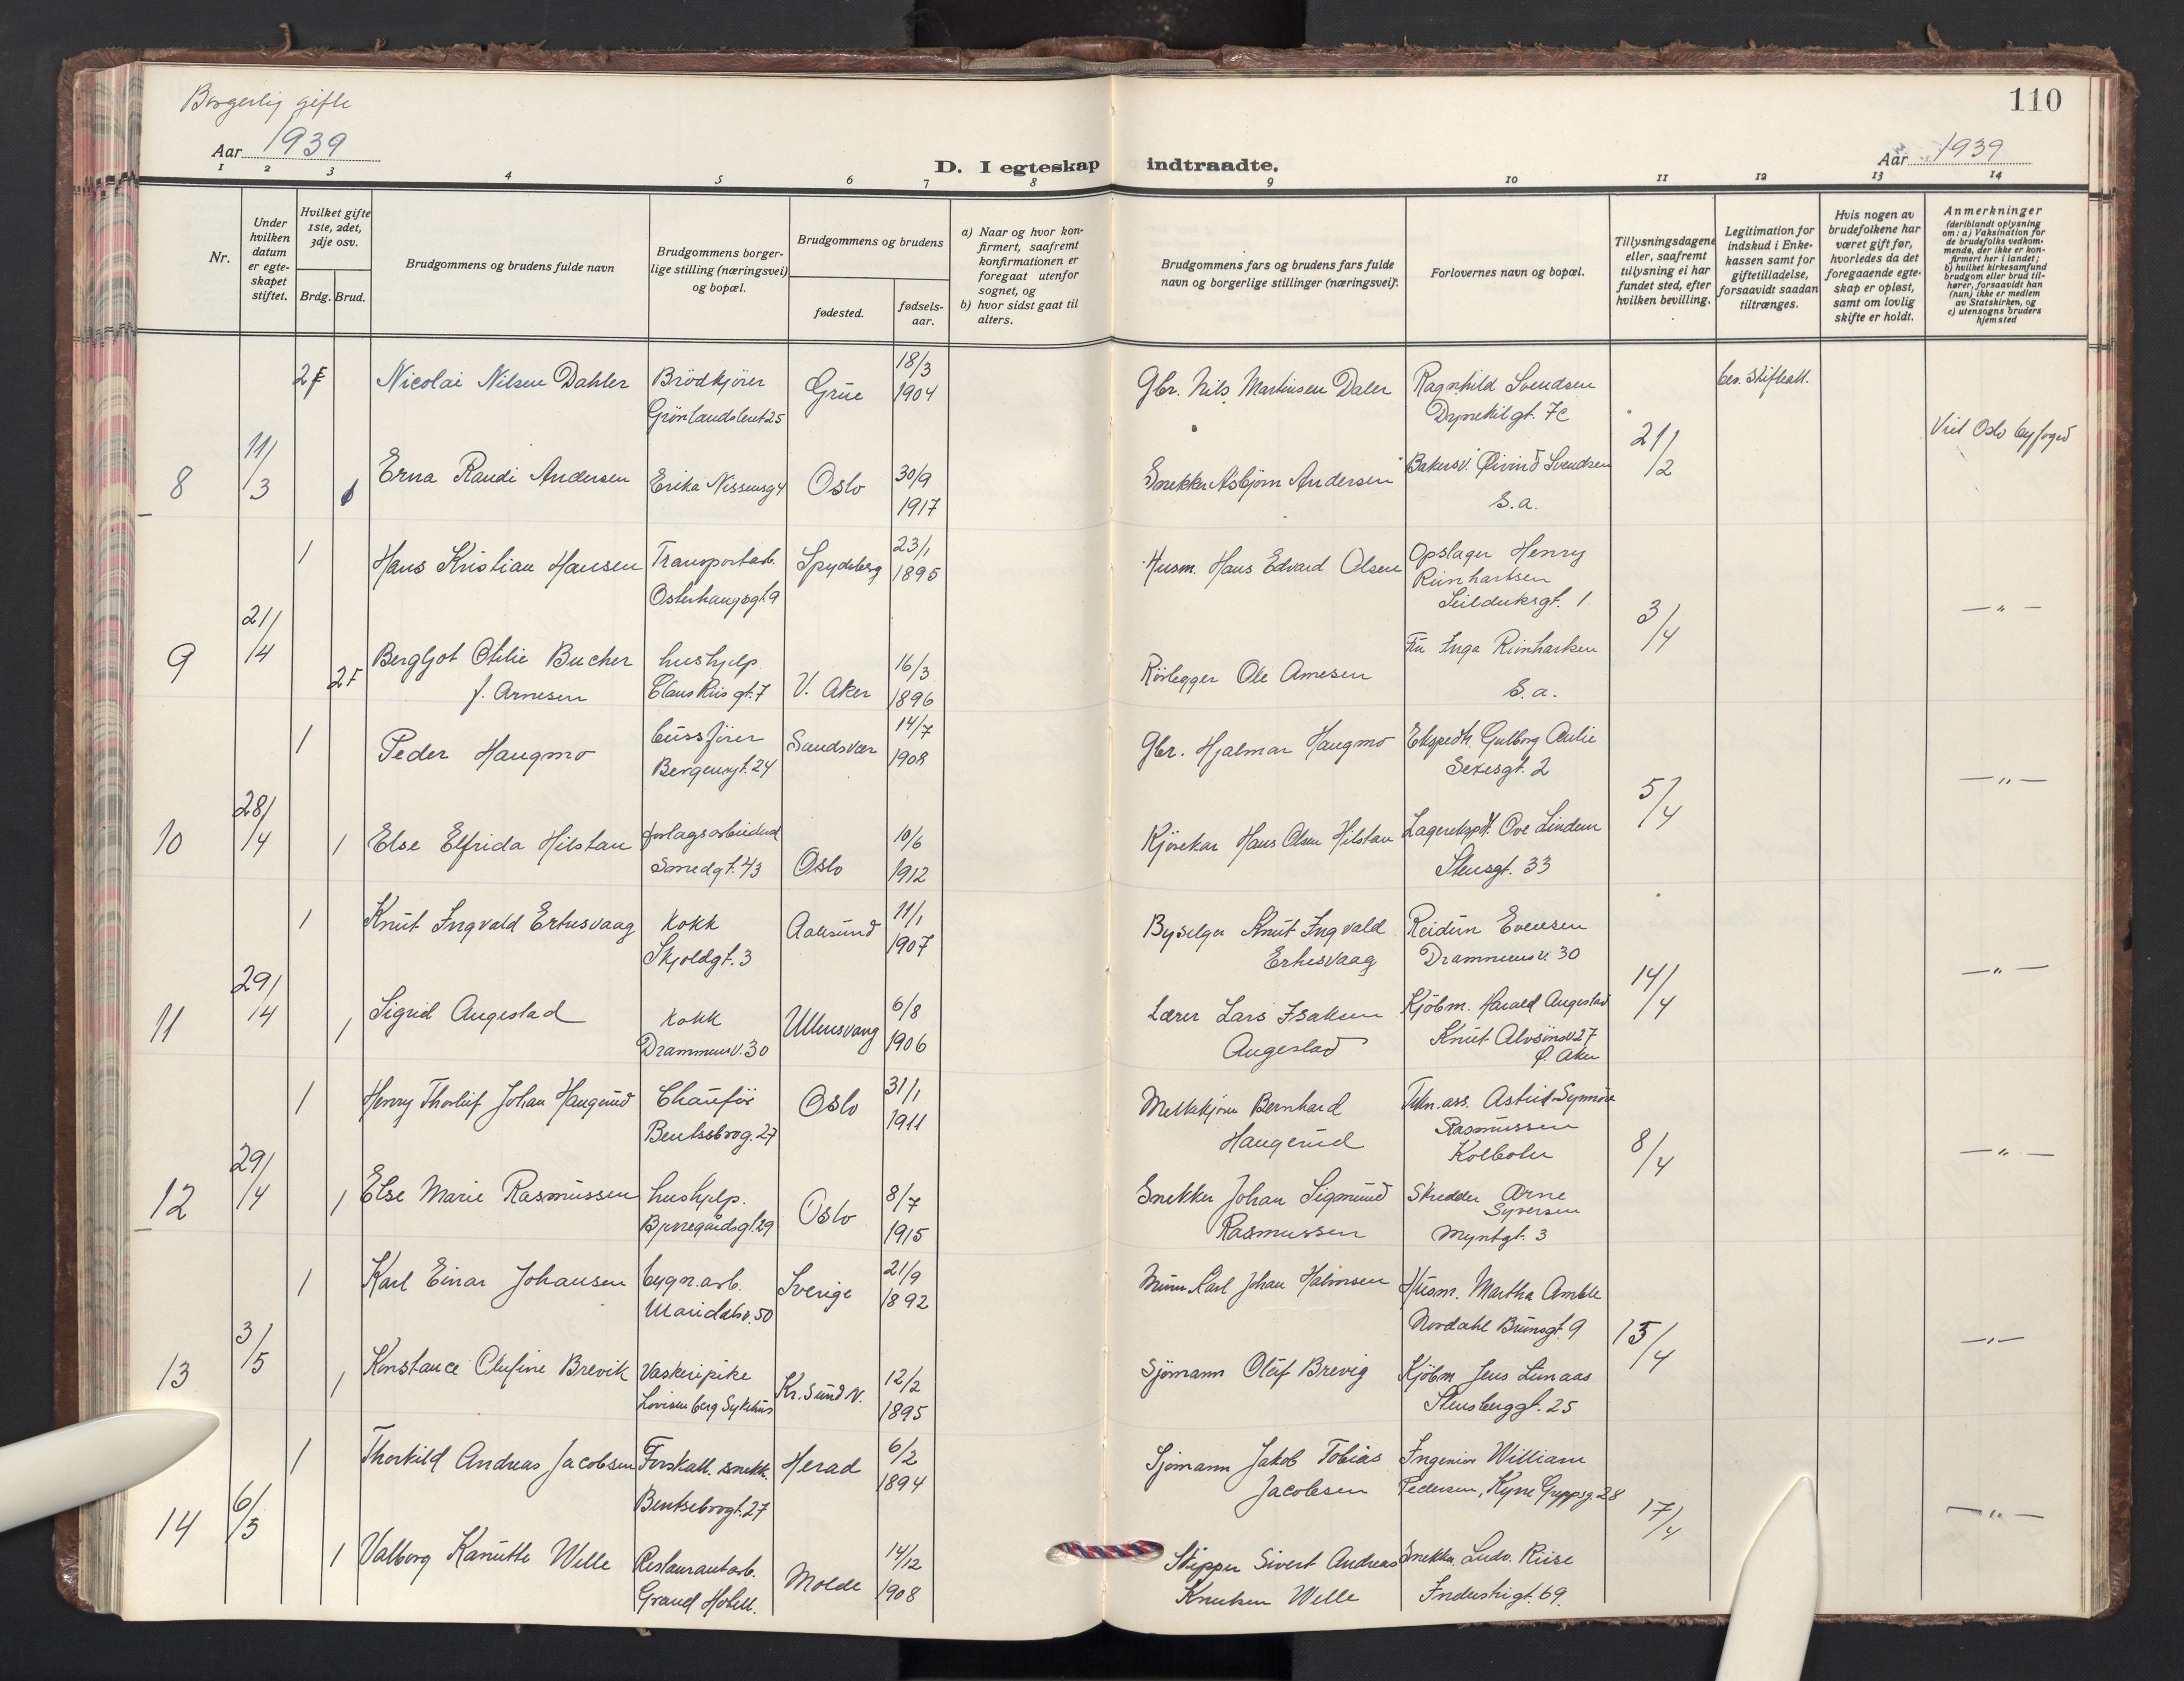 Borgerlig gifte
110
Aar 1939
D. I egteskap indtraadte.
Aar 1939
1 2 3 4 5 6 7 8 9 10 11 12 13 14
Nr.
Under hvilken datum er egteskapet stiftet.
Hvilket gifte 1ste, 2det, 3dje osv.
Brdg. Brud.
Brudgommens og brudens fulde navn
Brudgommens borgerlige stilling (næringsvei) og bopæl.
Brudgommens og brudens
fødested.
fødselsaar.
a) Naar og hvor konfirmert, saafremt konfirmationen er foregaat utenfor sognet, og
b) hvor sidst gaat til alters.
Brudgommens fars og brudens fars fulde navn og borgerlige stillinger (næringsvei).
Forlovernes navn og bopæl.
Tillysningsdagene eller, saafremt tillysning ei har fundet sted, efter hvilken bevilling.
Legitimation for indskud i Enkekassen samt for giftetilladelse, forsaavidt saadan tiltrænges.
Hvis nogen av brudefolkene har været gift før, hvorledes da det foregaaende egteskap er opløst, samt om lovlig skifte er holdt.
Anmerkninger (deriblandt oplysning om: a) Vaksination for de brudefolks vedkommende, der ikke er konfirmert her i landet; b) hvilket kirkesamfund brudgom eller brud tilhører, forsaavidt han (hun) ikke er medlem av Statskirken, og c) utensogns bruders hjemsted
2F Nicolai Nilsen Dahler Brödkjörer Grue 18/3 Gbr. Nils Martinsen Daler Ragnhild Svendsen bev. Skifteatt.
Grönlandsleret 25 1904 Dynekilgt. 7c
Viet Oslo byfoged
8 11/3 1 Erna Randi Andersen Erika Nissensg 4 Oslo 30/9 Snekker Asbjørn Andersen Bakersv. Øivind Svendsen 21/2
1917 S.a.
1 Hans Kristian Hansen Transportarb. Spydeberg 23/1 Husm. Hans Edvard Olsen Opslager Henry
Osterhausgt. 9 1895 Rinhartsen
Seilduksgt. 1
9 21/4 2F Bergljot Otilie Bucher hushjelp V. Aker 16/3 Rörlegger Ole Arnesen Fru Inga Rinhartsen 3/4 — " —
f. Arnesen Claus Riis gt. 7 1896 S.a.
1 Peder Haugmo bussjören Sandsvær 14/7 Gbr. Hjalmar Haugmo Ekspedtr. Gulborg Aulie
Bergensgt. 24 1908 Sexesgt. 2
10 28/4 1 Else Elfrida Hilstan forlagsarbeiderske Oslo 10/6 Kjørekar Hans Olsen Hilstan Lagerekspdt. Ove Lindem 5/4 — " —
Smedgt. 43 1912 Stensgt. 33
1 Knut Ingvald Ertesvaag Kokk Aalesund 11/1 Byselger Knut Ingvald Reidun Evensen
Skjoldgt. 3 1907 Ertesvaag Drammensv. 30
11 29/4 1 Sigrid Augestad Kokk Ullensvang 6/8 Lærer Lars Isaksen Kjöbm. Harald Augestad 14/4 — " —
Drammensv. 30 1906 Augestad Knut Alvsönsv. 27
Ø. Aker
1 Henry Thorleif Johan Haugerud Chauför Oslo 31/1 Melkekjører Bernhard Tekn. ass. Astrid Synnöve
Bentsebrog. 27 1911 Haugerud Rasmussen
Kolbotn
12 29/4 1 Else Marie Rasmussen hushjelp. Oslo 8/7 Snekker Johan Sigmund Skredder Arne 8/4 — " —
Bjerregårdsgt. 29 1915 Rasmussen Syversen
Myntgt. 3
1 Karl Einar Johansen bygn. arb. Sverige 21/9 Murer Karl Johan Halvorsen Husm. Martha Amble
Maridalsv. 50 1892 Nordahl Brunsgt. 9
13 3/5 1 Konstance Olufine Brevik Vaskeripike Kr. Sund N. 12/2 Sjömann Oluf Brevig Kjöbm Jens Limaas 15/4 — " —
Lovisenberg Sykehus 1895 Stensberggt. 25
1 Thorkild Andreas Jacobsen Forskall. snekk. Herad 6/2 Sjömann Jakob Tobias Ingeniør William
Bentsebrogt. 27 1894 Jacobsen Pedersen, Kyrre Greppsg. 28
14 6/5 1 Valborg Kanutte Welle Restaurantarb. Molde 14/12 Skipper Sivert Andreas Snekker Ludv. Riise 17/4 — " —
Grand Hotell. 1908 Knutsen Welle Industrigt. 69.